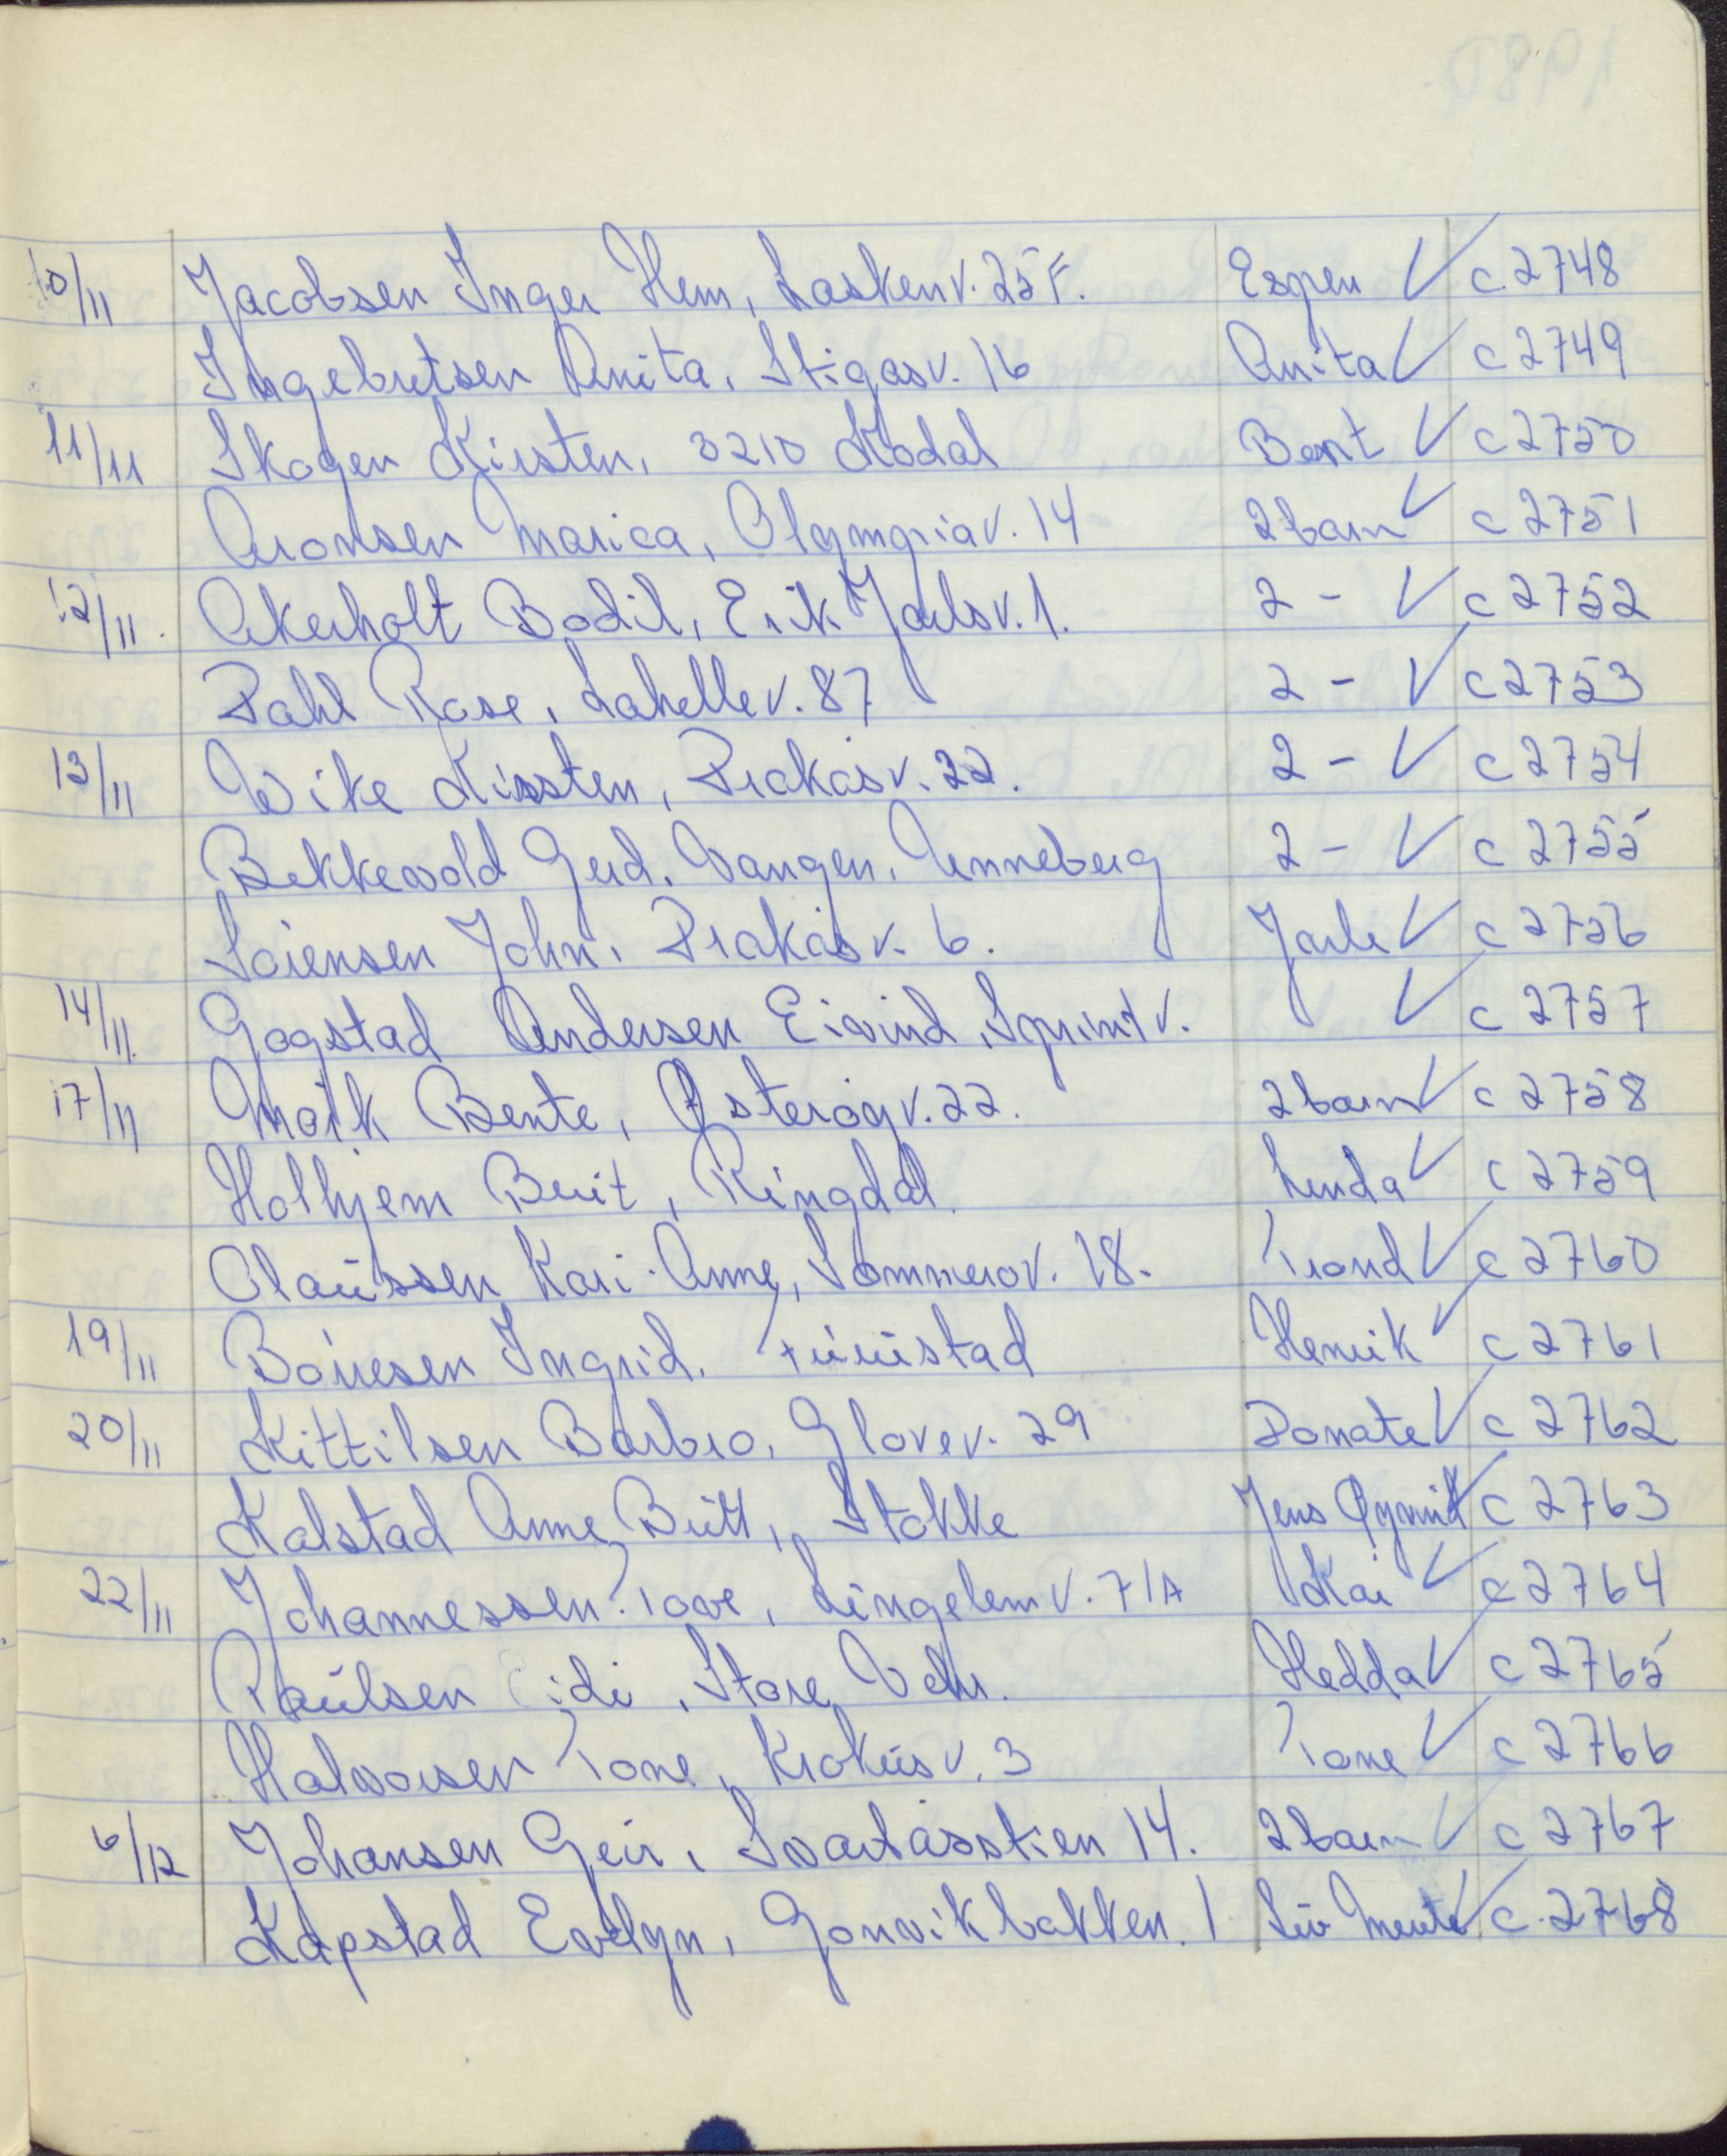 10/11 Jacobsen Inger Hem, Laskenv. 25 F. Espen √ c 2748
Ingebretsen Anita, Stigasv. 16 Anita √ c 2749
11/11 Skogen Kirsten, 3210 Kodal Bent √ c 2750
Aronsen Marica, Olympiav. 14 2 barn √ c 2751
12/11. Akerholt Bodil, Erik Jarlsv. 1. 2 - √ c 2752
Dahl Rose, Lahellev. 87 2 - √ c 2753
13/11 Wike Kirsten, Drakåsv. 22. 2 - √ c 2754
Bekkevold Gerd, Vangen, Unneberg 2 - √ c 2755
Sörensen John, Drakåsv. 6. Jarle √ c 2756
14/11. Gogstad Andersen Eivind, Sprintv. √ c 2757
17/11 Mørk Bente, Østerøyv. 22. 2 barn √ c 2758
Holhjem Berit, Ringdal. Linda √ c 2759
Olaussen Kari-Anne, Sommerov. 18. Trond √ c 2760
19/11 Börresen Ingrid. Henrik √ c 2761
20/11 Kittilsen Barbro, Glovev. 29 Donate √ c 2762
Kalstad Anne Britt, Stokke Jens Øyvind √ c 2763
22/11 Johannessen Tove, Lingelemv. 71A Kai √ c 2764
Paulsen Store Vehr. Hedda √ c 2765
Halvorsen Tone, Krokusv. 3 Tone √ c 2766
6/12 Johansen Geir, Svartåsstien 14. 2 barn √ c 2767
Kapstad Evelyn, Gonvikbakken. 1 Liv Merete √ c. 2768